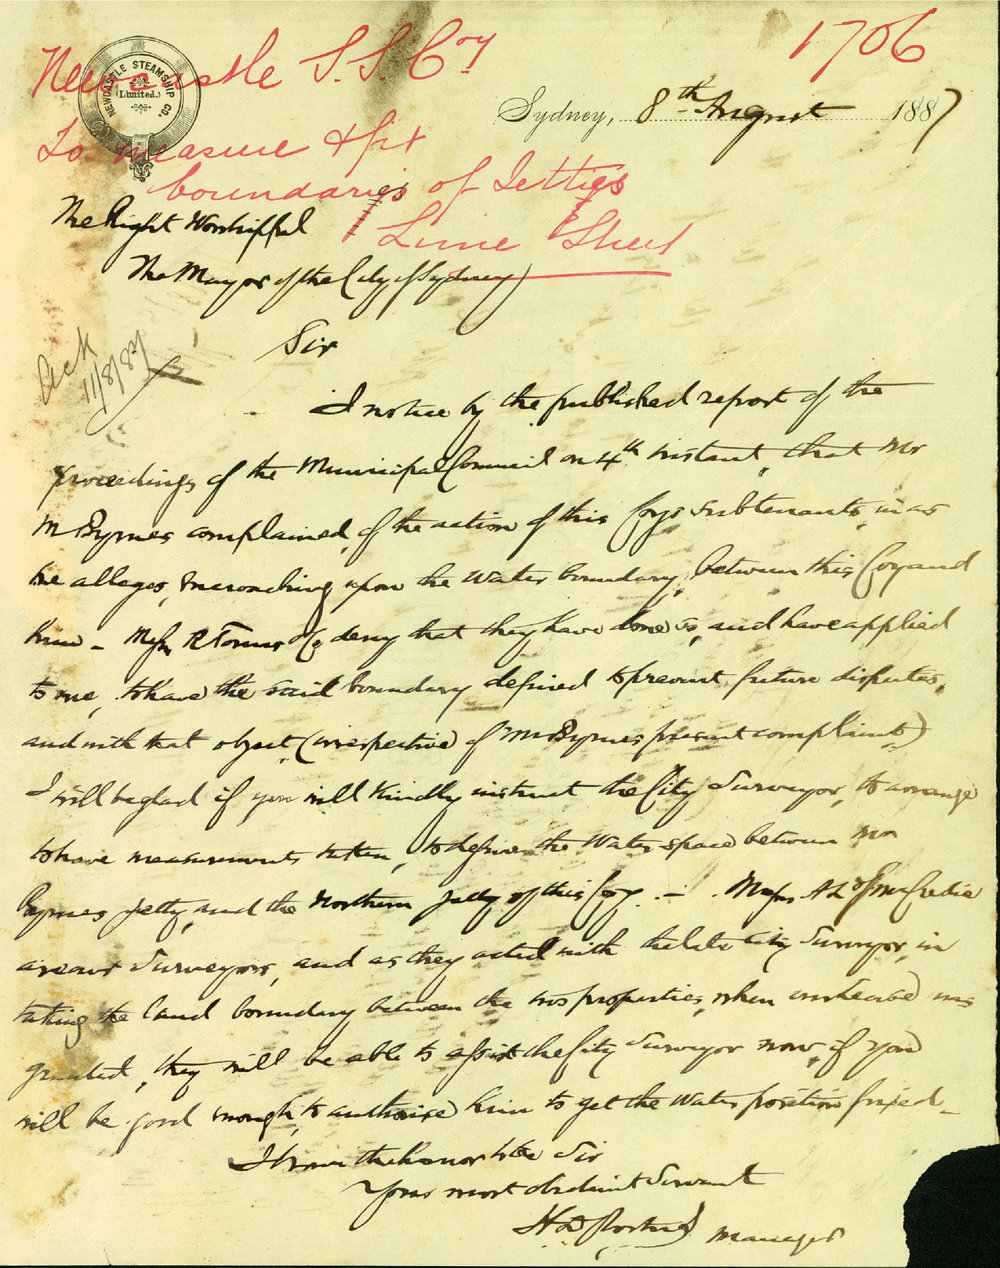 1706
Newcastle S.S. Coy
To measure & fix
boundaries of Jetties
Lime Street
NEWCASTLE STEAMSHIP CO.
(Limited.)
Sydney, 8th August 1887
The Right Worshipful
The Mayor of the City of Sydney
Ack
11/8/87
Sir
I notice by the published report of the
proceedings of the Municipal Council on 4th instant, that Mr
M Byrnes complained, of the action of this Coys subtenants, in as
he alleges, encroaching upon the water boundary, between this Coy and
him - Messrs R Co deny that they have done so, and have applied
to me, to have the said boundary defined to prevent future disputes,
and with that object, (irrespective of Mr Byrnes present complaint)
I will be glad if you will kindly instruct the City Surveyor, to arrange
to have measurements taken, to define the water space between Mr
Byrnes Jetty, and the Northern Jetty of this Coy. - Messrs A L & McCredie
are our Surveyors, and as they acted with the late City Surveyor, in
taking the land boundary between the two properties, when our lease was
granted, they will be able to assist the City Surveyor now, if you
will be good enough, to authorise him to get the water position fixed -
I have the honor to be Sir
Your most obedient Servant
Manager